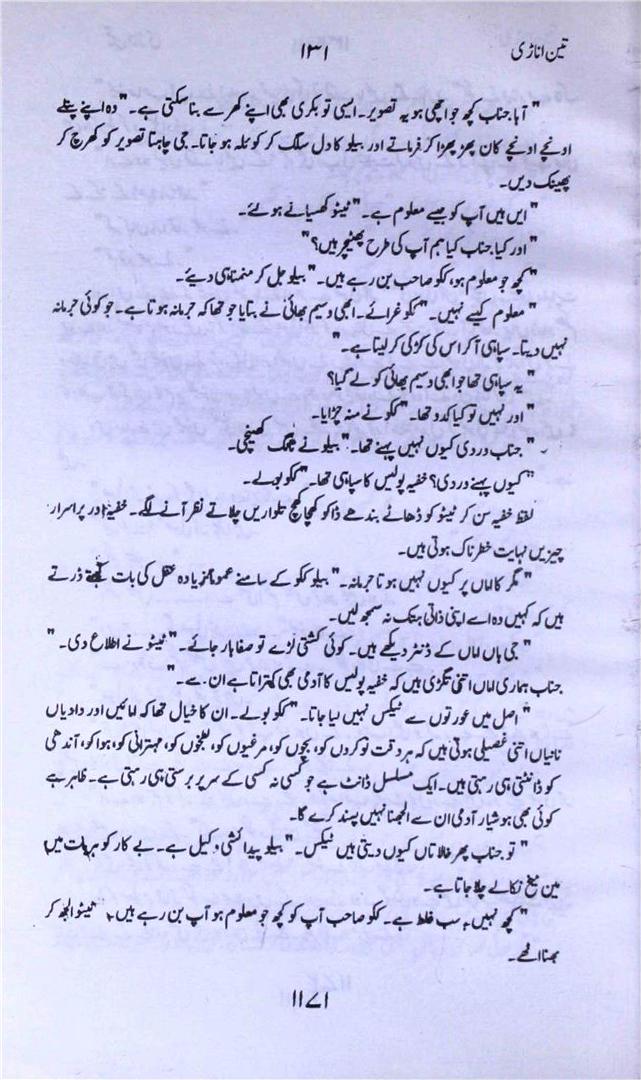 تین اناڑی
۱۳۱
" آہا۔ جناب کچھ جو اچھی ہو یہ تصویر۔ ایسی تو بکری بھی اپنے کھرے بنا سکتی ہے۔" وہ اپنے پتلے
اونچے اونچے کان پھڑپھڑا کر فرماتے اور بیلو کا دل سلگ کر کوئلہ ہو جاتا۔ جی چاہتا تصویر کو کھرچ کر
پھینک دیں۔
" ایں ہیں آپ کو جیسے معلوم ہے۔" ٹیٹو کھسیانے ہو لئے۔
" اور کیا جناب کیا ہم آپ کی طرح پھٹیچر ہیں؟"
" کچھ جو معلوم ہو، ککو صاحب بن رہے ہیں۔" بیلو جل کر منمنا ہی دیئے۔
" معلوم کیسے نہیں۔" ککو غرائے۔ ابھی وسیم بھائی نے بتایا جو تھا کہ جرمانہ ہوتا ہے۔ جو کوئی جرمانہ
نہیں دیتا۔ سپاہی آکر اس کی کڑکی کر لیتا ہے۔"
" یہ سپاہی تھا جو ابھی وسیم بھائی کو لے گیا؟
" اور نہیں تو کیا کدو تھا۔" ککو نے منہ چڑایا۔
" جناب وردی کیوں نہیں پہنے تھا۔" بیلو نے ٹانگ کھینچی۔
" کیوں پہنے وردی؟ خفیہ پولیس کا سپاہی تھا۔" ککو بولے۔
لفظ خفیہ سن کر ٹیٹو کو ڈھاٹے بندھے ڈاکو کھچا کھچ تلواریں چلاتے نظر آنے لگے۔ خفیہ اور پراسرار
چیزیں نہایت خطرناک ہوتی ہیں۔
" مگر کا اماں پر کیوں نہیں ہوتا جرمانہ۔" بیلو ککو کے سامنے عموماً زیادہ عقل کی بات کہتے ڈرتے
ہیں کہ کہیں وہ اسے اپنی ذاتی ہتک نہ سمجھ لیں۔
" جی ہاں اماں کے ڈنٹر دیکھے ہیں۔ کوئی کشتی لڑے تو صفا ہار جائے۔" ٹیٹو نے اطلاع دی۔ "
جناب ہماری اماں اتنی تگڑی ہیں کہ خفیہ پولیس کا آدمی بھی کتراتا ہے ان سے۔"
" اصل میں عورتوں سے ٹیکس نہیں لیا جاتا۔" ککو بولے۔ ان کا خیال تھا کہ امائیں اور دادیاں
نانیاں اتنی غصیلی ہوتی ہیں کہ ہر وقت نوکروں کو، بچوں کو، مرغیوں کو، بطخوں کو، مہترانی کو، ہوا کو، آندھی
کو ڈانٹتی ہی رہتی ہیں۔ ایک مسلسل ڈانٹ ہے جو کسی نہ کسی کے سر پر برستی ہی رہتی ہے۔ ظاہر ہے
کوئی بھی ہوشیار آدمی ان سے الجھنا نہیں پسند کرے گا۔
" تو جناب پھر خالائاں کیوں دیتی ہیں ٹیکس۔" بیلو پیدائشی وکیل ہے۔ بے کار کو ہر بات میں
مین میخ نکالے چلا جاتا ہے۔
" کچھ نہیں، سب غلط ہے۔ ککو صاحب آپ کو کچھ جو معلوم ہو آپ بن رہے ہیں۔" ٹیٹو الجھ کر
بھنا اٹھے۔
۱۱۷۱